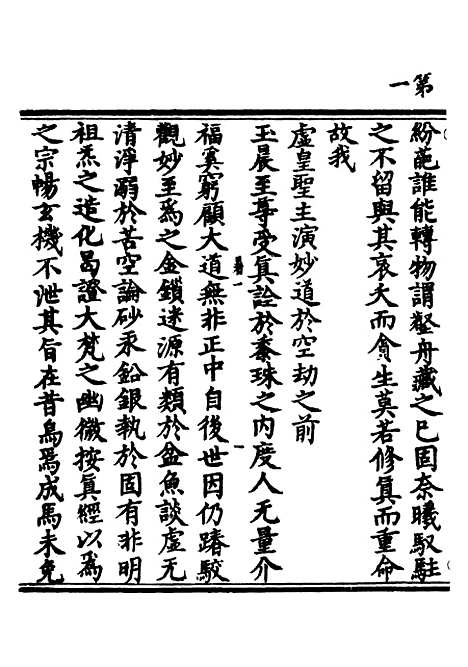 第一
紛葩誰能轉物謂壑舟藏之已固奈曦馭駐
之不留與其哀夭而貪生莫若修眞而重命
故我
虛皇聖主演妙道於空劫之前
玉晨至尊受眞詮於黍珠之內度人无量介
福莫窮顧大道無非正中自後世因仍踳駮
觀妙至爲之金鎖迷源有類於盆魚談虛无
清淨溺於苦空論砂汞鉛銀執於固有非明
祖炁之造化曷證大梵之幽微按眞經以爲
之宗暢玄機不泄其旨在昔烏焉成馬未免